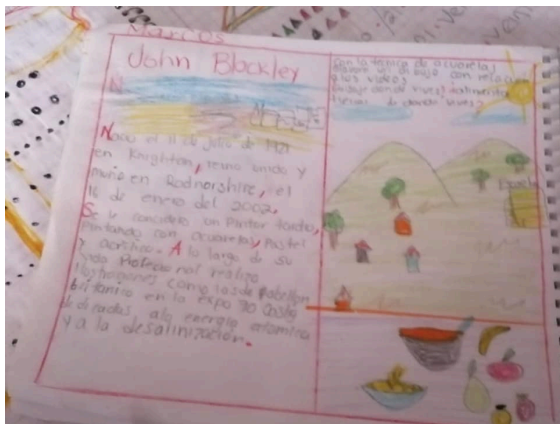 Marcos
John Blockley
Nacio el 11 de julio de 1921
en Knighton, reino unido y
murio en Radnorshire, el
16 de enero del 2002.
Se le considero un Pintor tardio,
Pintando con acuarelas, Pastel
y acrilico. A lo largo de su
vida Profecional realizo
ilustraciones como las de Pabellon
britanico en la expo 70 Osaka
dedicadas ala energia atomica
y a la desalinización.
con la tecnica de acuarelas
un dibujo con relacion
a los videos
paisaje donde vives?
donde vives?
Escuela